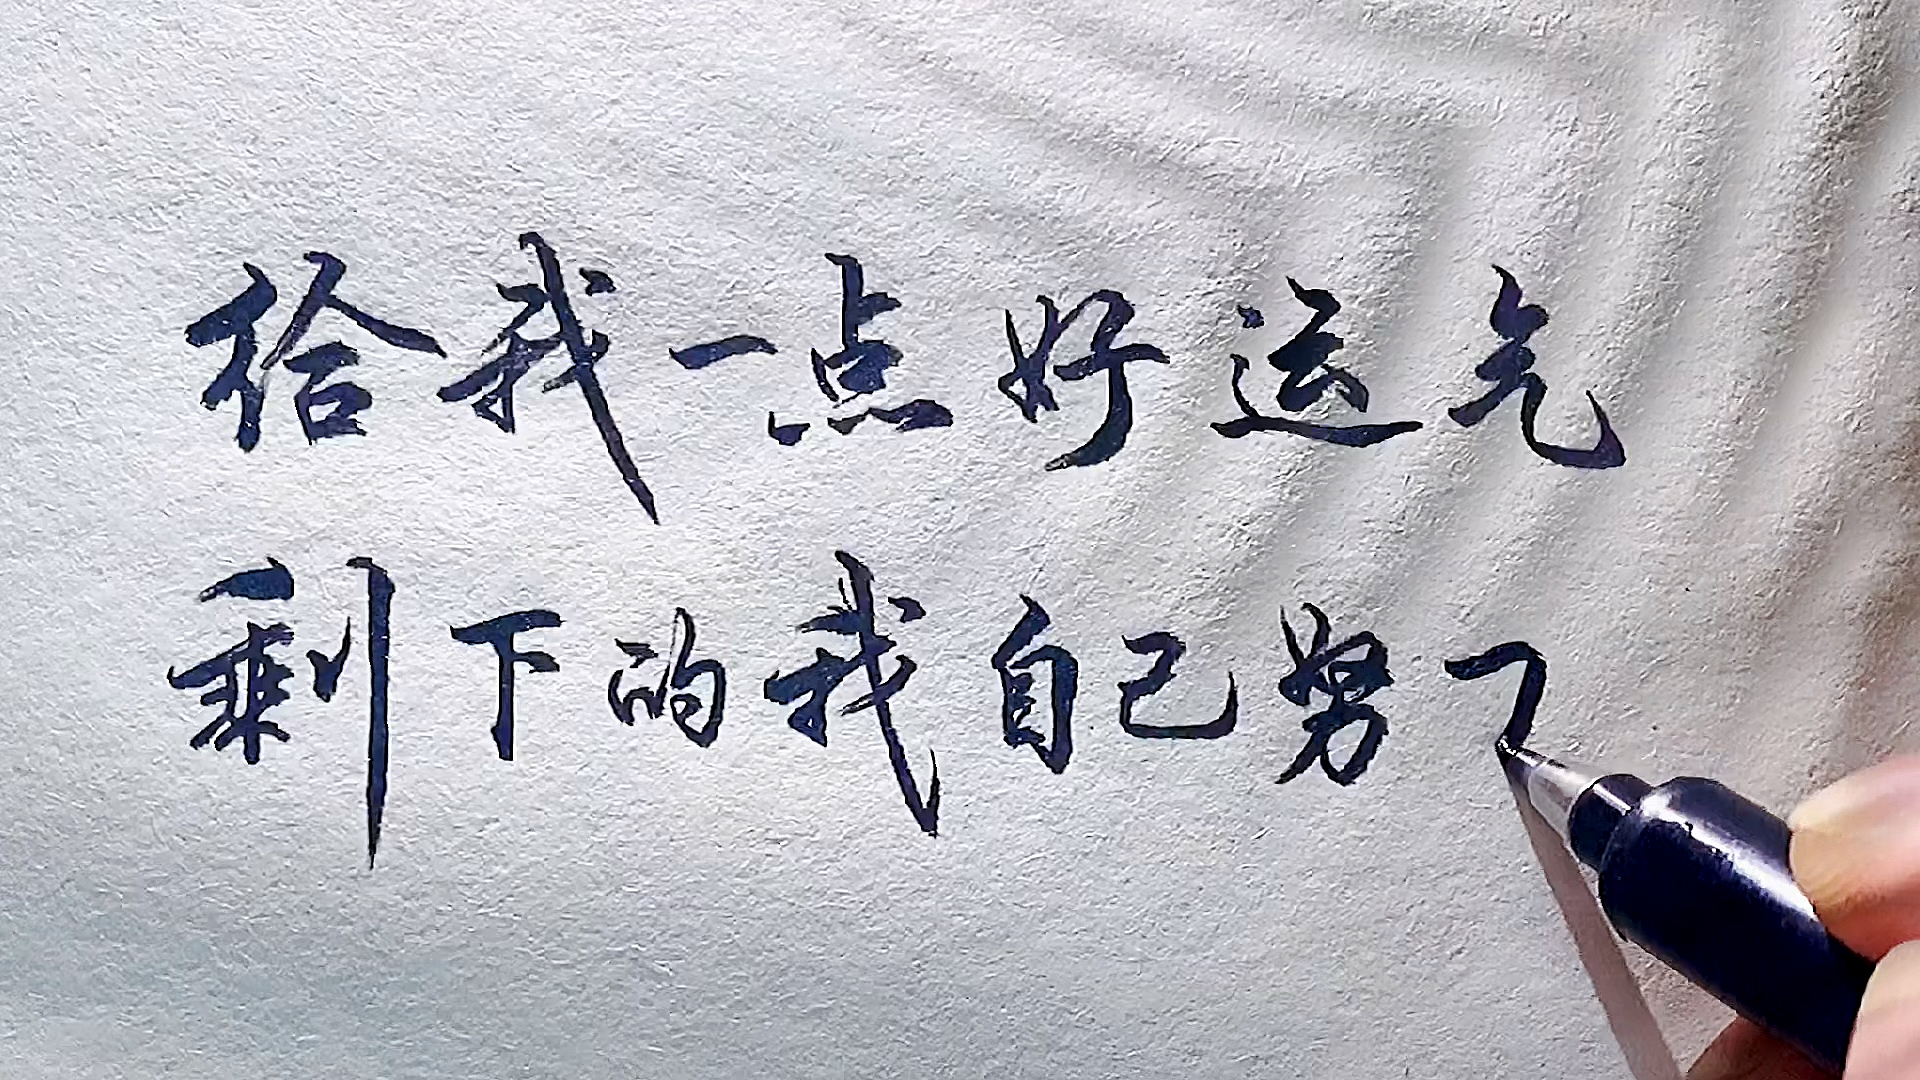 给我一点好运气
剩下的我自己努